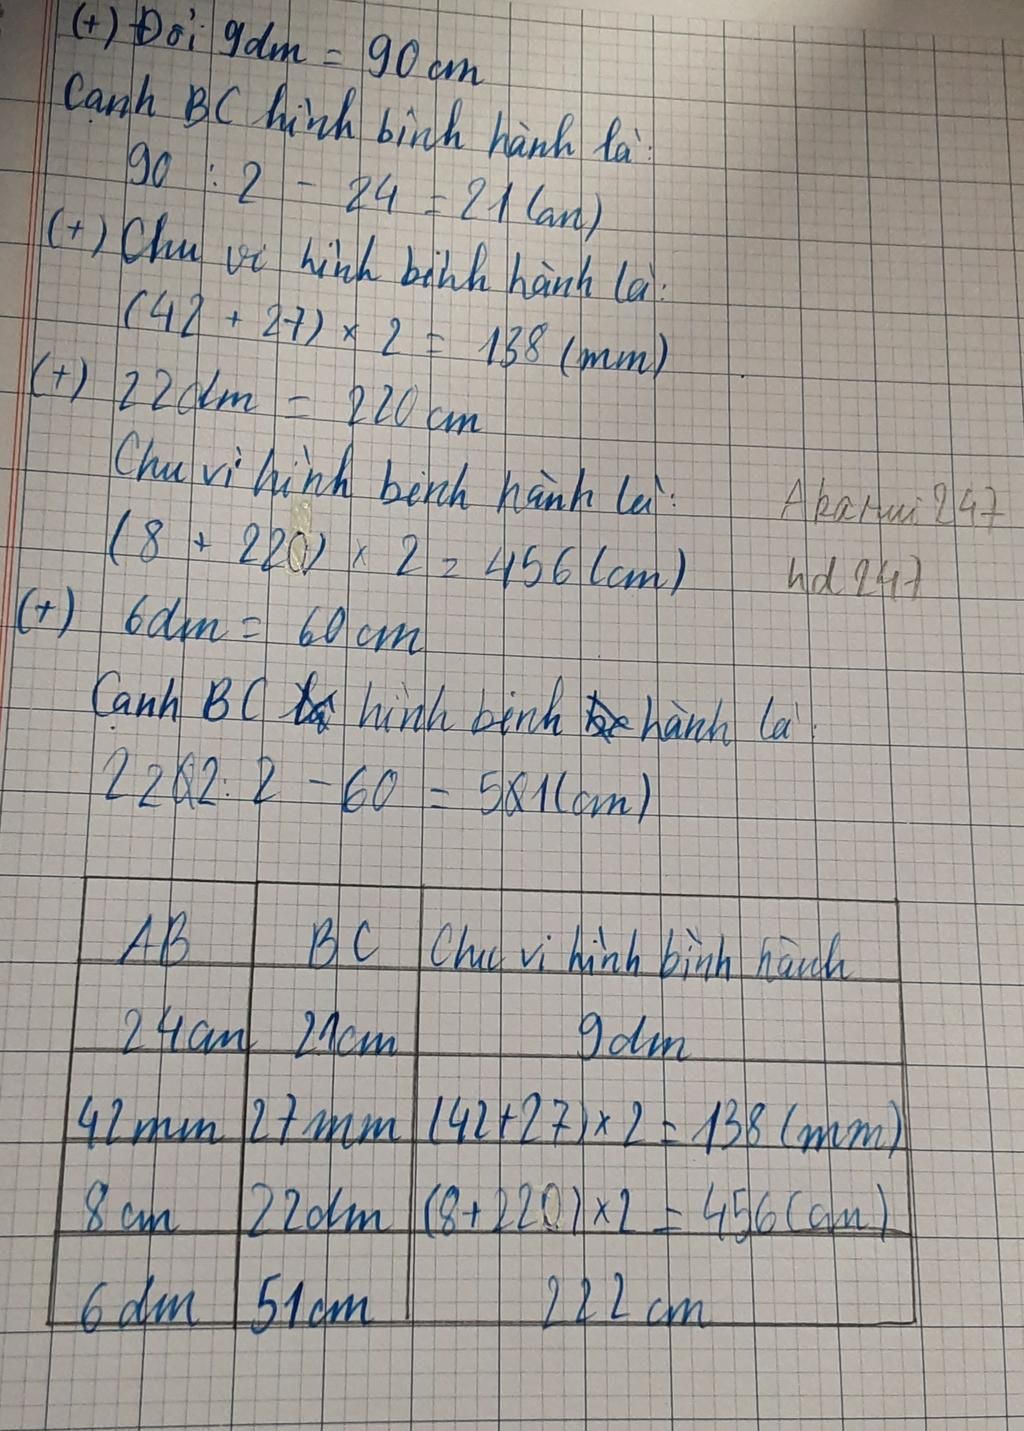 (+) Đổi 9dm = 90 cm
Cạnh BC hình bình hành là:
90 : 2 - 24 = 21 (cm)
(+) Chu vi hình bình hành là:
(42 + 27) × 2 = 138 (mm)
(+) 22dm = 220 cm
Chu vi hình bình hành là:
(8 + 220) × 2 = 456 (cm)
Akarui 247
hd 247
(+) 6dm = 60 cm
Cạnh BC hình bình hành là:
222 : 2 - 60 = 51 (cm)
AB BC Chu vi hình bình hành
24cm 21cm 9dm
42mm 27mm (42+27)×2 = 138 (mm)
8cm 22dm (8+220)×2 = 456 (cm)
6dm 51cm 222 cm